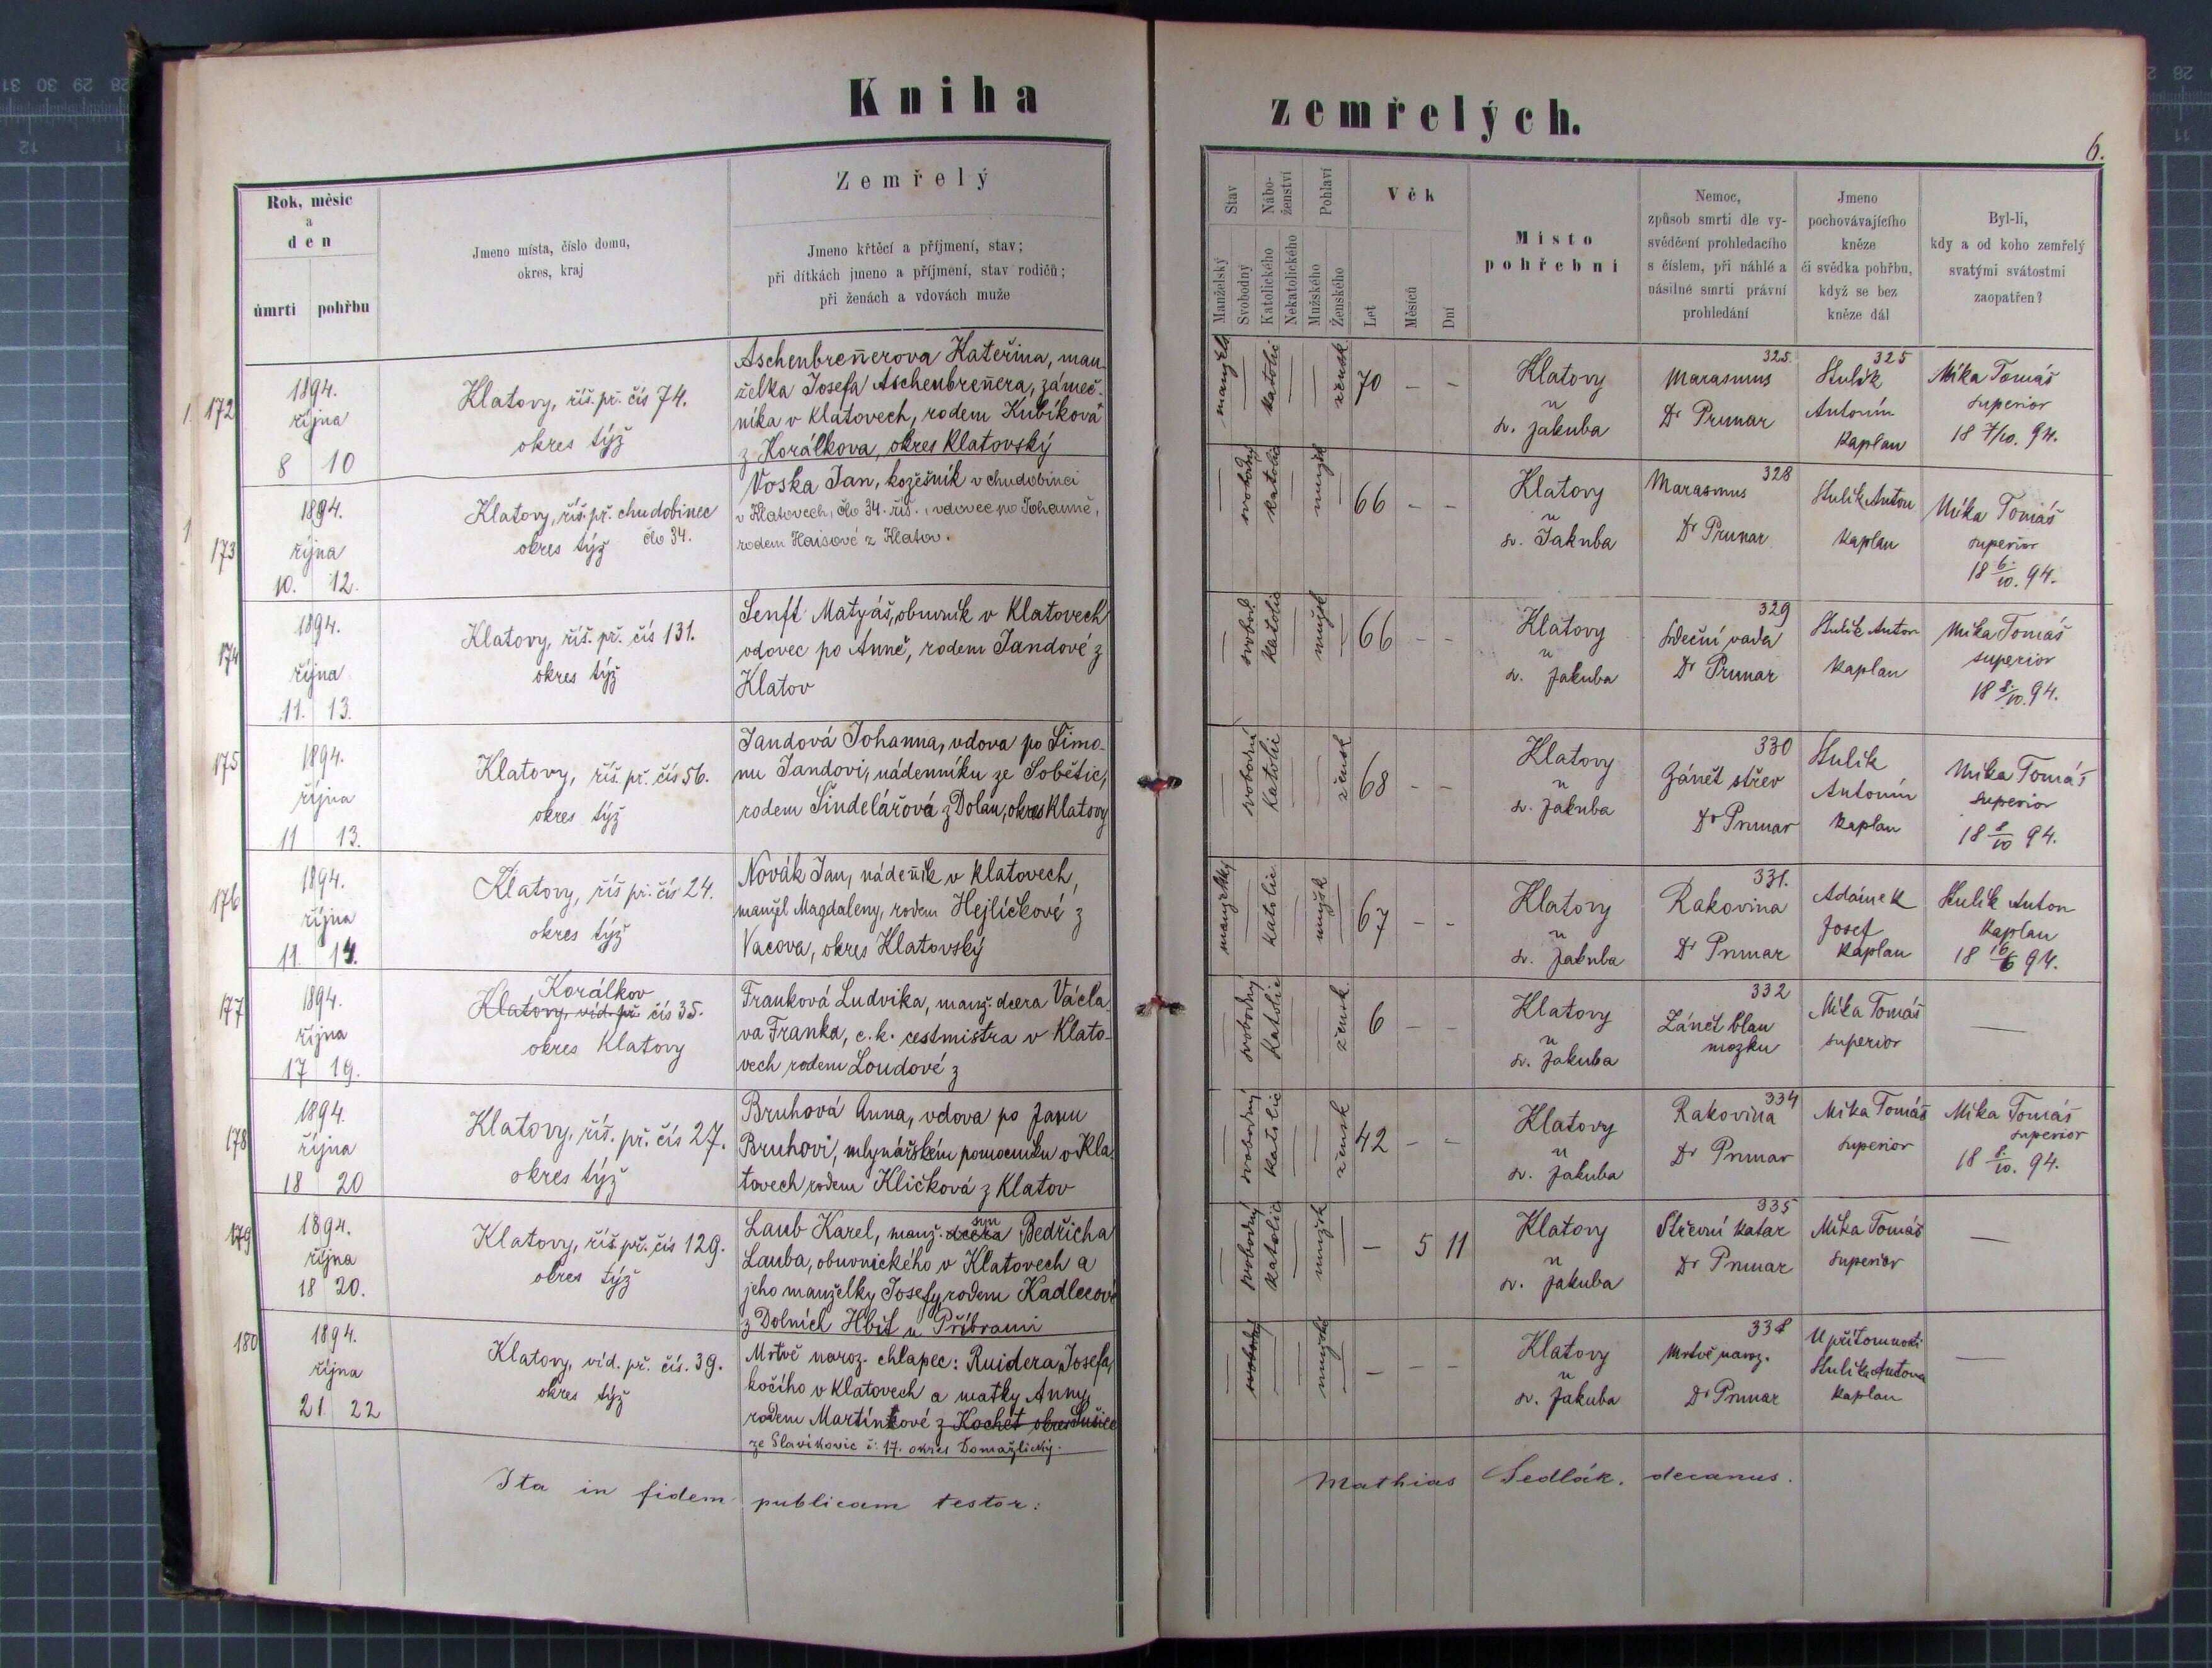 Kniha
zemřelých.
6.
Rok, měsíc
a
den
úmrtí
pohřbu
Jmeno místa, číslo domu,
okres, kraj
Zemřelý
Jmeno křtěcí a příjmení, stav;
při dítkách jmeno a příjmení, stav rodičů;
při ženách a vdovách muže
Stav
Nábo-
ženství
Pohlaví
Manželský
Svobodný
Katolického
Nekatolického
Mužského
Ženského
Věk
Let
Měsíců
Dní
Místo
pohřební
Nemoc,
způsob smrti dle vy-
svědčení prohledacího
s číslem, při náhlé a
násilné smrti právní
prohledání
Jmeno
pochovávajícího
kněze
či svědka pohřbu,
když se bez
kněze dál
Byl-li,
kdy a od koho zemřelý
svatými svátostmi
zaopatřen?
1. 172
1894.
října
8 10
Klatovy, říš. př. čís 74.
okres týž
Aschenbreñerova Kateřina, man-
želka Josefa Aschenbreñera, zámeč-
níka v Klatovech, rodem Kubíková
z Korálkova, okres Klatovský
manžels
katolic
žensk
70 – –
Klatovy
u
sv. Jakuba
325
Marasmus
Dr Prunar
325
Stulík
Antonín
Kaplan
Mika Tomáš
superior
18 7/10. 94.
1
173
1894.
října
10. 12.
Klatovy, říš. př. chudobinec
okres týž člo 34.
Voska Jan, kožešník v chudobinci
v Klatovech, člo 34. říš., vdovec po Johanně,
rodem Haisové z Klatov.
svobodný
katolic
mužsk
66 – –
Klatovy
u
sv. Jakuba
328
Marasmus
Dr Prunar
Stulík Anton
Kaplan
Mika Tomáš
superior
18 6./10. 94.
174
1894.
října
11. 13.
Klatovy, říš. př. čís 131.
okres týž
Senft Matyáš, obuvník v Klatovech
vdovec po Anně, rodem Jandové z
Klatov
svobod.
katolic
mužsk
66 – –
Klatovy
u
sv. Jakuba
329
Srdeční vada
Dr Prunar
Stulík Anton
Kaplan
Mika Tomáš
superior
18 8./10. 94.
175
1894.
října
11 13.
Klatovy, říš. př. čís 56.
okres týž
Jandová Johanna, vdova po Šimo-
nu Jandovi, nádenníku ze Sobětic,
rodem Šindelářová z Dolan, okres Klatovy
svobodná
katolic
žensk
68 – –
Klatovy
u
sv. Jakuba
330
Zánět střev
Dr Prunar
Stulík
Antonín
Kaplan
Mika Tomáš
superior
18 8/10 94.
176
1894.
října
11 14.
Klatovy, říš př. čís 24.
okres týž
Novák Jan, nádeñík v Klatovech,
manžel Magdaleny, rodem Hejlíčkové z
Vacova, okres Klatovský
manželský
katolic
mužsk
67 – –
Klatovy
u
sv. Jakuba
331.
Rakovina
Dr Prunar
Adámek
Josef
Kaplan
Stulík Anton
Kaplan
18 16/6 94.
177
1894.
října
17 19.
Korálkov
Klatovy, víd. př. čís 35.
okres Klatovy
Franková Ludvika, manž. dcera Václa-
va Franka, c. k. cestmistra v Klato-
vech rodem Loudové z
svobodný
katolic
žensk
6 – –
Klatovy
u
sv. Jakuba
332
Zánět blan
mozku
Mika Tomáš
superior
—
178
1894.
října
18 20
Klatovy, říš. př. čís 27.
okres týž
Bruhová Anna, vdova po Janu
Bruhovi, mlynářském pomocníku v Kla-
tovech rodem Kličková z Klatov
svobodný
katolic
žensk
42 – –
Klatovy
u
sv. Jakuba
334
Rakovina
Dr Prunar
Mika Tomáš
superior
Mika Tomáš
superior
18 8./10. 94.
179
1894.
října
18 20.
Klatovy, říš. př. čís 129.
okres týž
syn
Laub Karel, manž. dcera Bedřicha
Lauba, obuvnického v Klatovech a
jeho manželky Josefy rodem Kadlecové
z Dolních Hbit u Příbrami
svobodný
katolic
mužsk
– 5 11
Klatovy
u
sv. Jakuba
335
Střevní katar
Dr Prunar
Mika Tomáš
superior
—
180
1894.
října
21. 22
Klatovy, víd. př. čís. 39.
okres týž
Mrtvě naroz. chlapec: Ruidera Josefa,
kočího v Klatovech a matky Anny
rodem Martínkové z Kochét okres Sušice
ze Slavíkovic č. 17. okres Domažlický.
svobodný
mužsk
– – –
Klatovy
u
sv. Jakuba
338
Mrtvě naroz.
Dr Prunar
U přítomnosti
Stulíka Antona
Kaplan
—
Ita in fidem publicam testor:
Mathias Sedlák. decanus.